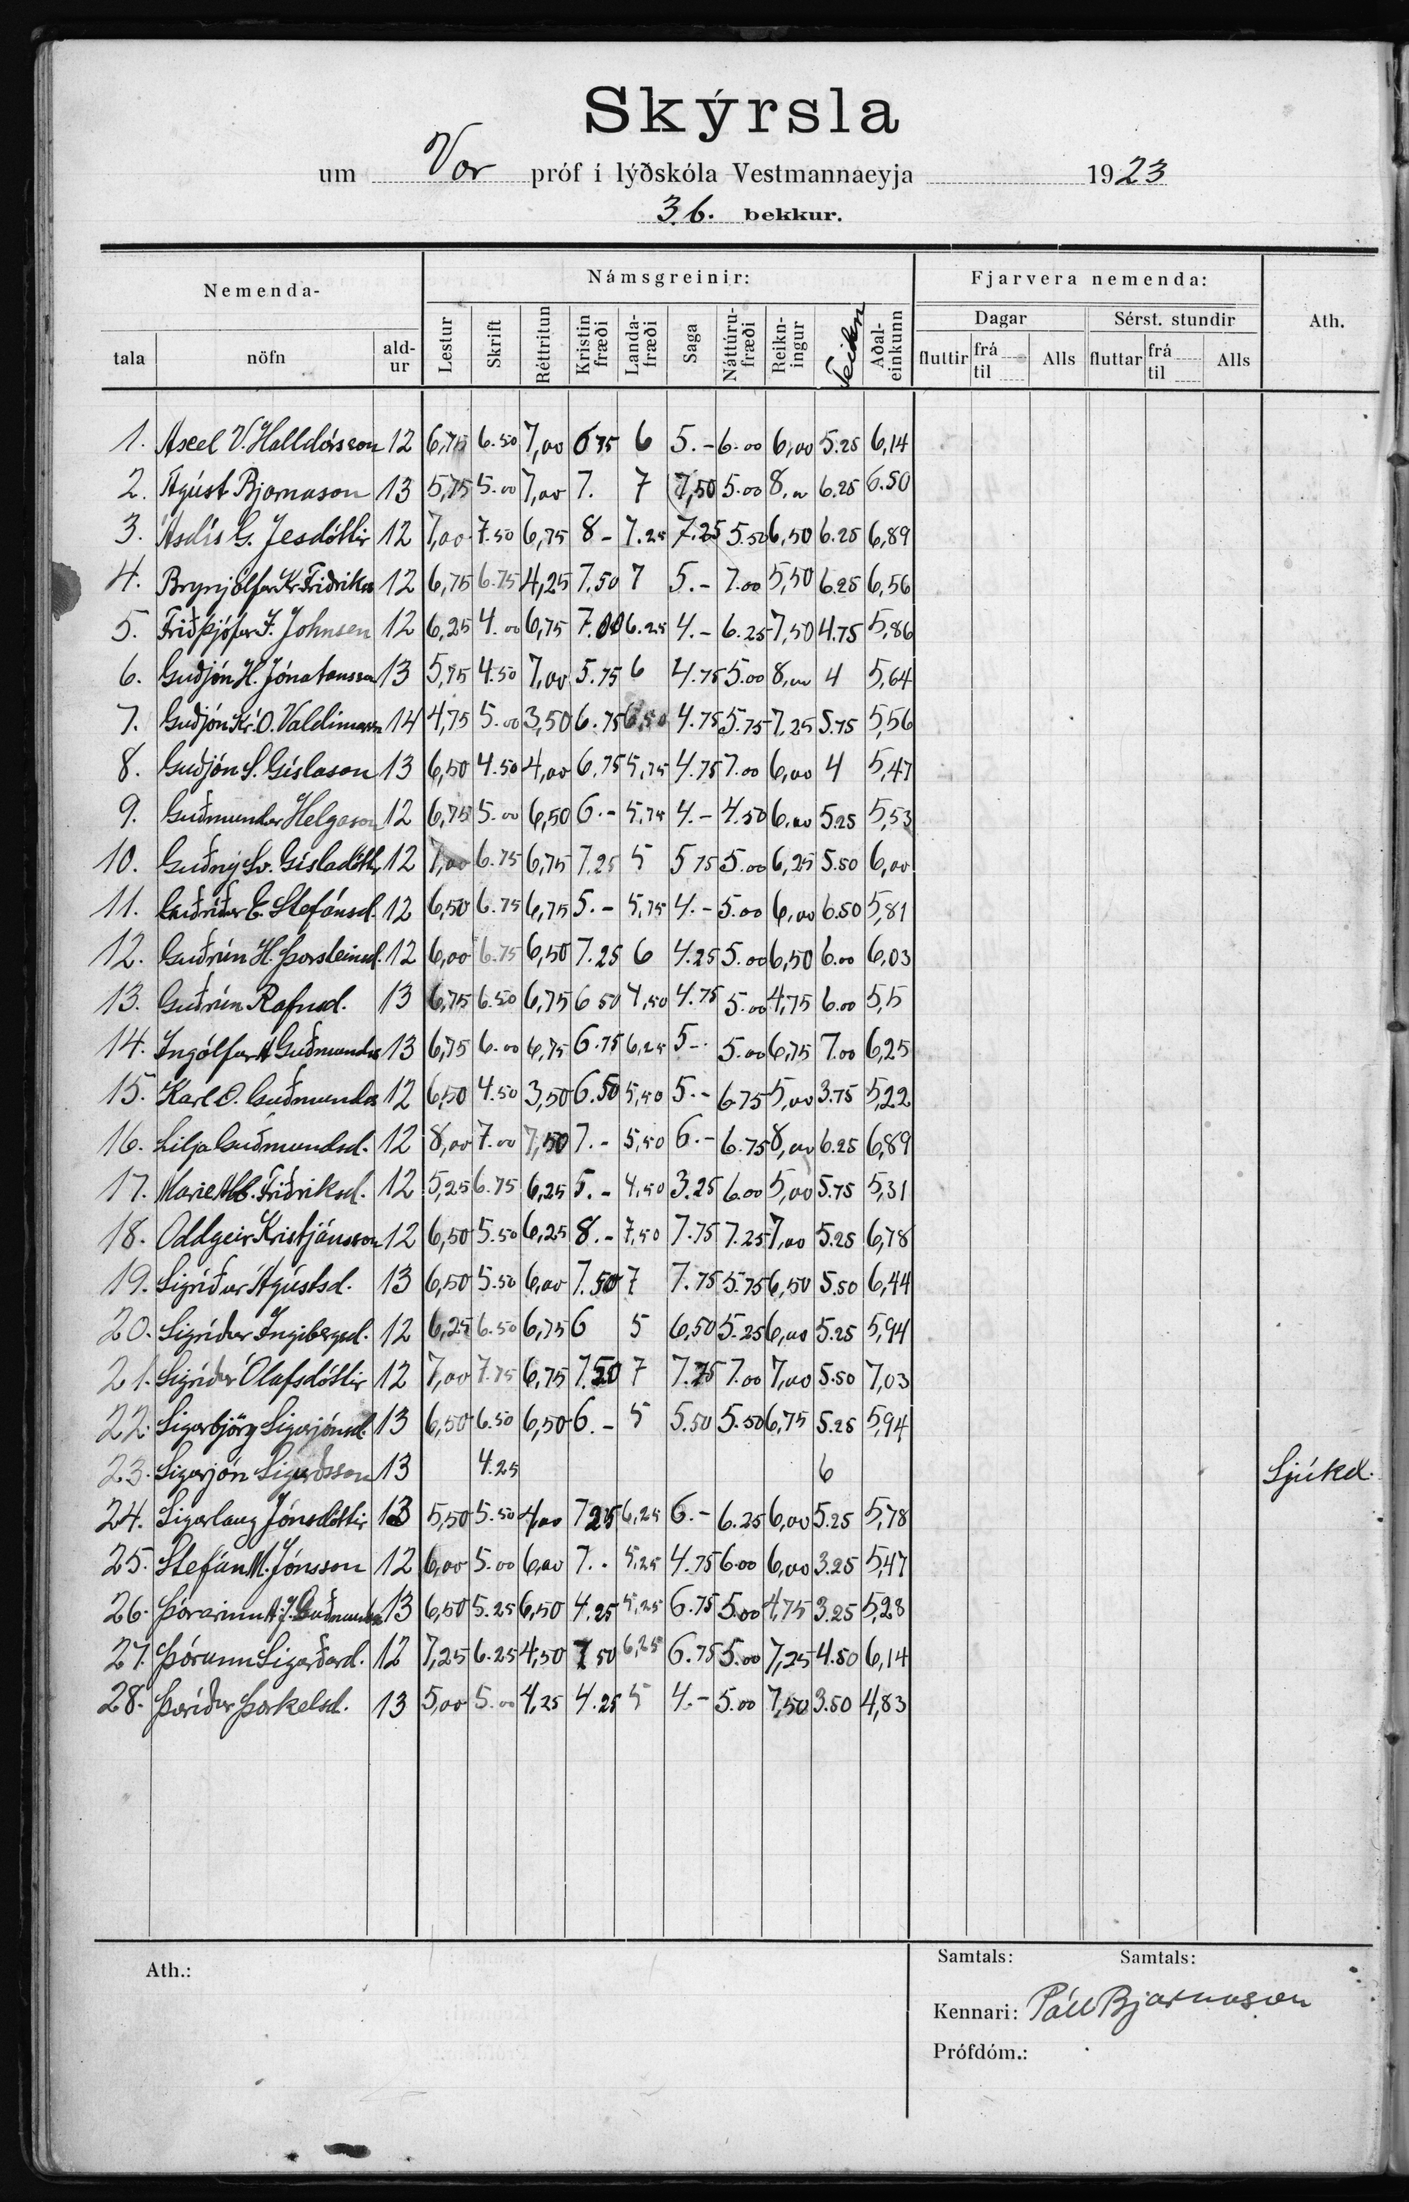 Skýrsla
um Vor próf í lýðskóla Vestmannaeyja 1923
3.b. bekkur.
Nemenda- Námsgreinir: Fjarvera nemenda: Ath.
Dagar Sérst. stundir
tala nöfn ald-ur Lestur Skrift Réttritun Kristin fræði Landa-fræði Saga Náttúru-fræði Reikn-ingur Teikn Aðal-einkunn fluttir frá til Alls fluttar frá til Alls
1. Axel V. Halldórsson 12 6,75 6.50 7,00 6 75 6 5.- 6.00 6,00 5.25 6,14
2. Ágúst Bjarnason 13 5,75 5.00 7,00 7. 7 7,50 5.00 8,00 6.25 6.50
3. Ásdís G. Jesdóttir 12 7,00 7.50 6,75 8- 7.25 7.25 5.50 6,50 6.25 6,89
4. Brynjólfur Kr. Friðriks 12 6,75 6.75 4,25 7.50 7 5.- 7.00 5,50 6.25 6,56
5. Friðþjófur J. Johnsen 12 6,25 4.00 6,75 7.00 6.25 4.- 6.25 7,50 4.75 5,86
6. Guðjón H. Jónatansson 13 5,75 4.50 7,00 5.75 6 4.75 5.00 8,00 4 5,64
7. Guðjón Kr. Ó. Valdimarsn 14 4,75 5.00 3,50 6.75 6,50 4.75 5.75 7,25 5.75 5,56
8. Guðjón S. Gíslason 13 6,50 4.50 4,00 6.75 5,75 4.75 7.00 6,00 4 5,47
9. Guðmundur Helgason 12 6,75 5.00 6,50 6.- 5,75 4.- 4.50 6,00 5.25 5,53
10. Guðný Sv. Gísladóttir 12 7,00 6.75 6,75 7.25 5 5 75 5.00 6,25 5.50 6,00
11. Guðríður E. Stefánsd. 12 6,50 6.75 6,75 5.- 5,75 4.- 5.00 6,00 6.50 5,81
12. Guðrún H. Þorsteinsd. 12 6,00 6.75 6,50 7.25 6 4.25 5.00 6,50 6.00 6,03
13. Guðrún Rafnsd. 13 6,75 6.50 6,75 6 50 4,50 4.75 5.00 4,75 6.00 5,5
14. Ingólfur A Guðmunds 13 6,75 6.00 6,75 6.75 6,25 5-. 5.00 6,75 7.00 6,25
15. Karl O. Guðmunds 12 6,50 4.50 3,50 6.50 5,50 5.- 6.75 5,00 3.75 5,22
16. Lilja Guðmundsd. 12 8,00 7.00 7,50 7.- 5,50 6.- 6.75 8,00 6.25 6,89
17. Marie Friðriksd. 12 5,25 6.75 6,25 5.- 4,50 3.25 6.00 5,00 5.75 5,31
18. Oddgeir Kristjánsson 12 6,50 5.50 6,25 8.- 7,50 7.75 7.25 7,00 5.25 6,78
19. Sigríður Ágústsd. 13 6,50 5.50 6,00 7.50 7 7.75 5.75 6,50 5.50 6,44
20. Sigríður Ingibergsd. 12 6,25 6.50 6,75 6 5 6,50 5.25 6,00 5.25 5,94
21. Sigríður Ólafsdóttir 12 7,00 7.75 6,75 7.50 7 7.75 7.00 7,00 5.50 7,03
22. Sigurbjörg Sigurjónsd. 13 6,50 6.50 6,50 6.- 5 5.50 5.50 6,75 5.25 5,94
23. Sigurjón Sigurðsson 13 4.25 6 Sjúkd.
24. Sigurlaug Jónsdóttir 13 5,50 5.50 4,00 7 25 6,25 6.- 6.25 6,00 5.25 5,78
25. Stefán M. Jónsson 12 6,00 5.00 6,00 7.. 5,25 4.75 6.00 6,00 3.25 5,47
26. Þórarinn A. J. Guðmunds 13 6,50 5.25 6,50 4.25 5,25 6.75 5.00 4,75 3.25 5,28
27. Þórunn Sigurðard. 12 7,25 6.25 4,50 7 50 6,25 6.75 5.00 7,25 4.50 6,14
28. Þuríður Þorkelsd. 13 5,00 5.00 4,25 4.25 5 4.- 5.00 7,50 3.50 4,83
Ath.:
Samtals: Samtals:
Kennari: Páll Bjarnason
Prófdóm.: